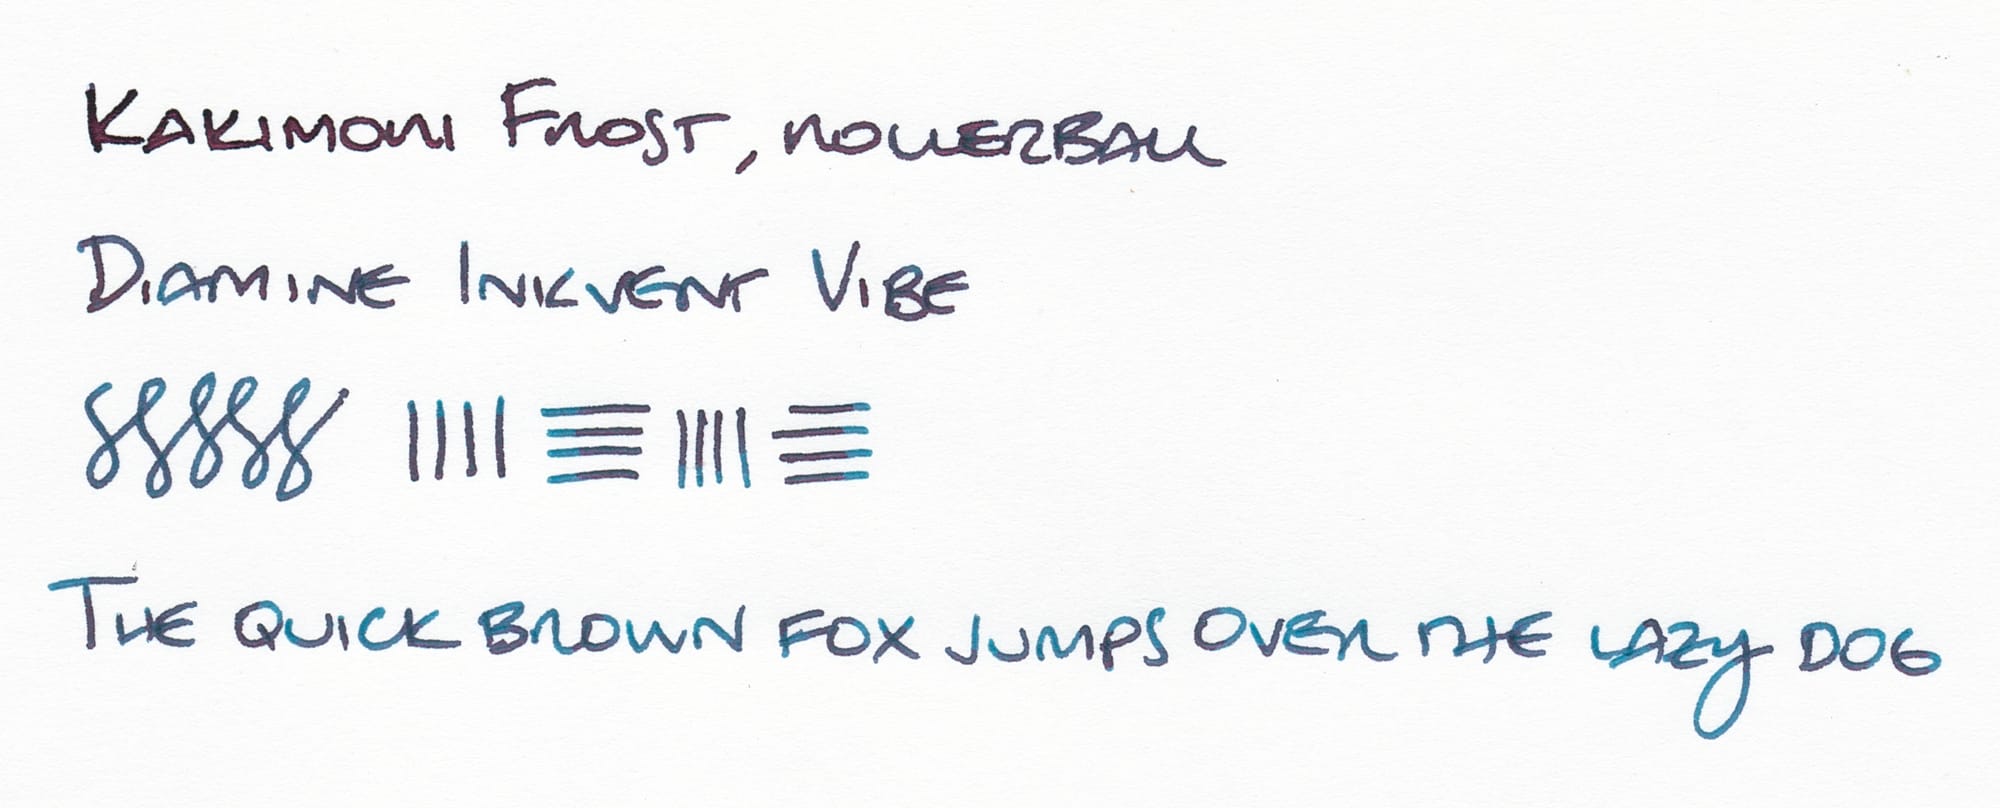 KAKIMORI FROST, ROLLERBALL
DIAMINE INKVENT VIBE
THE QUICK BROWN FOX JUMPS OVER THE LAZY DOG